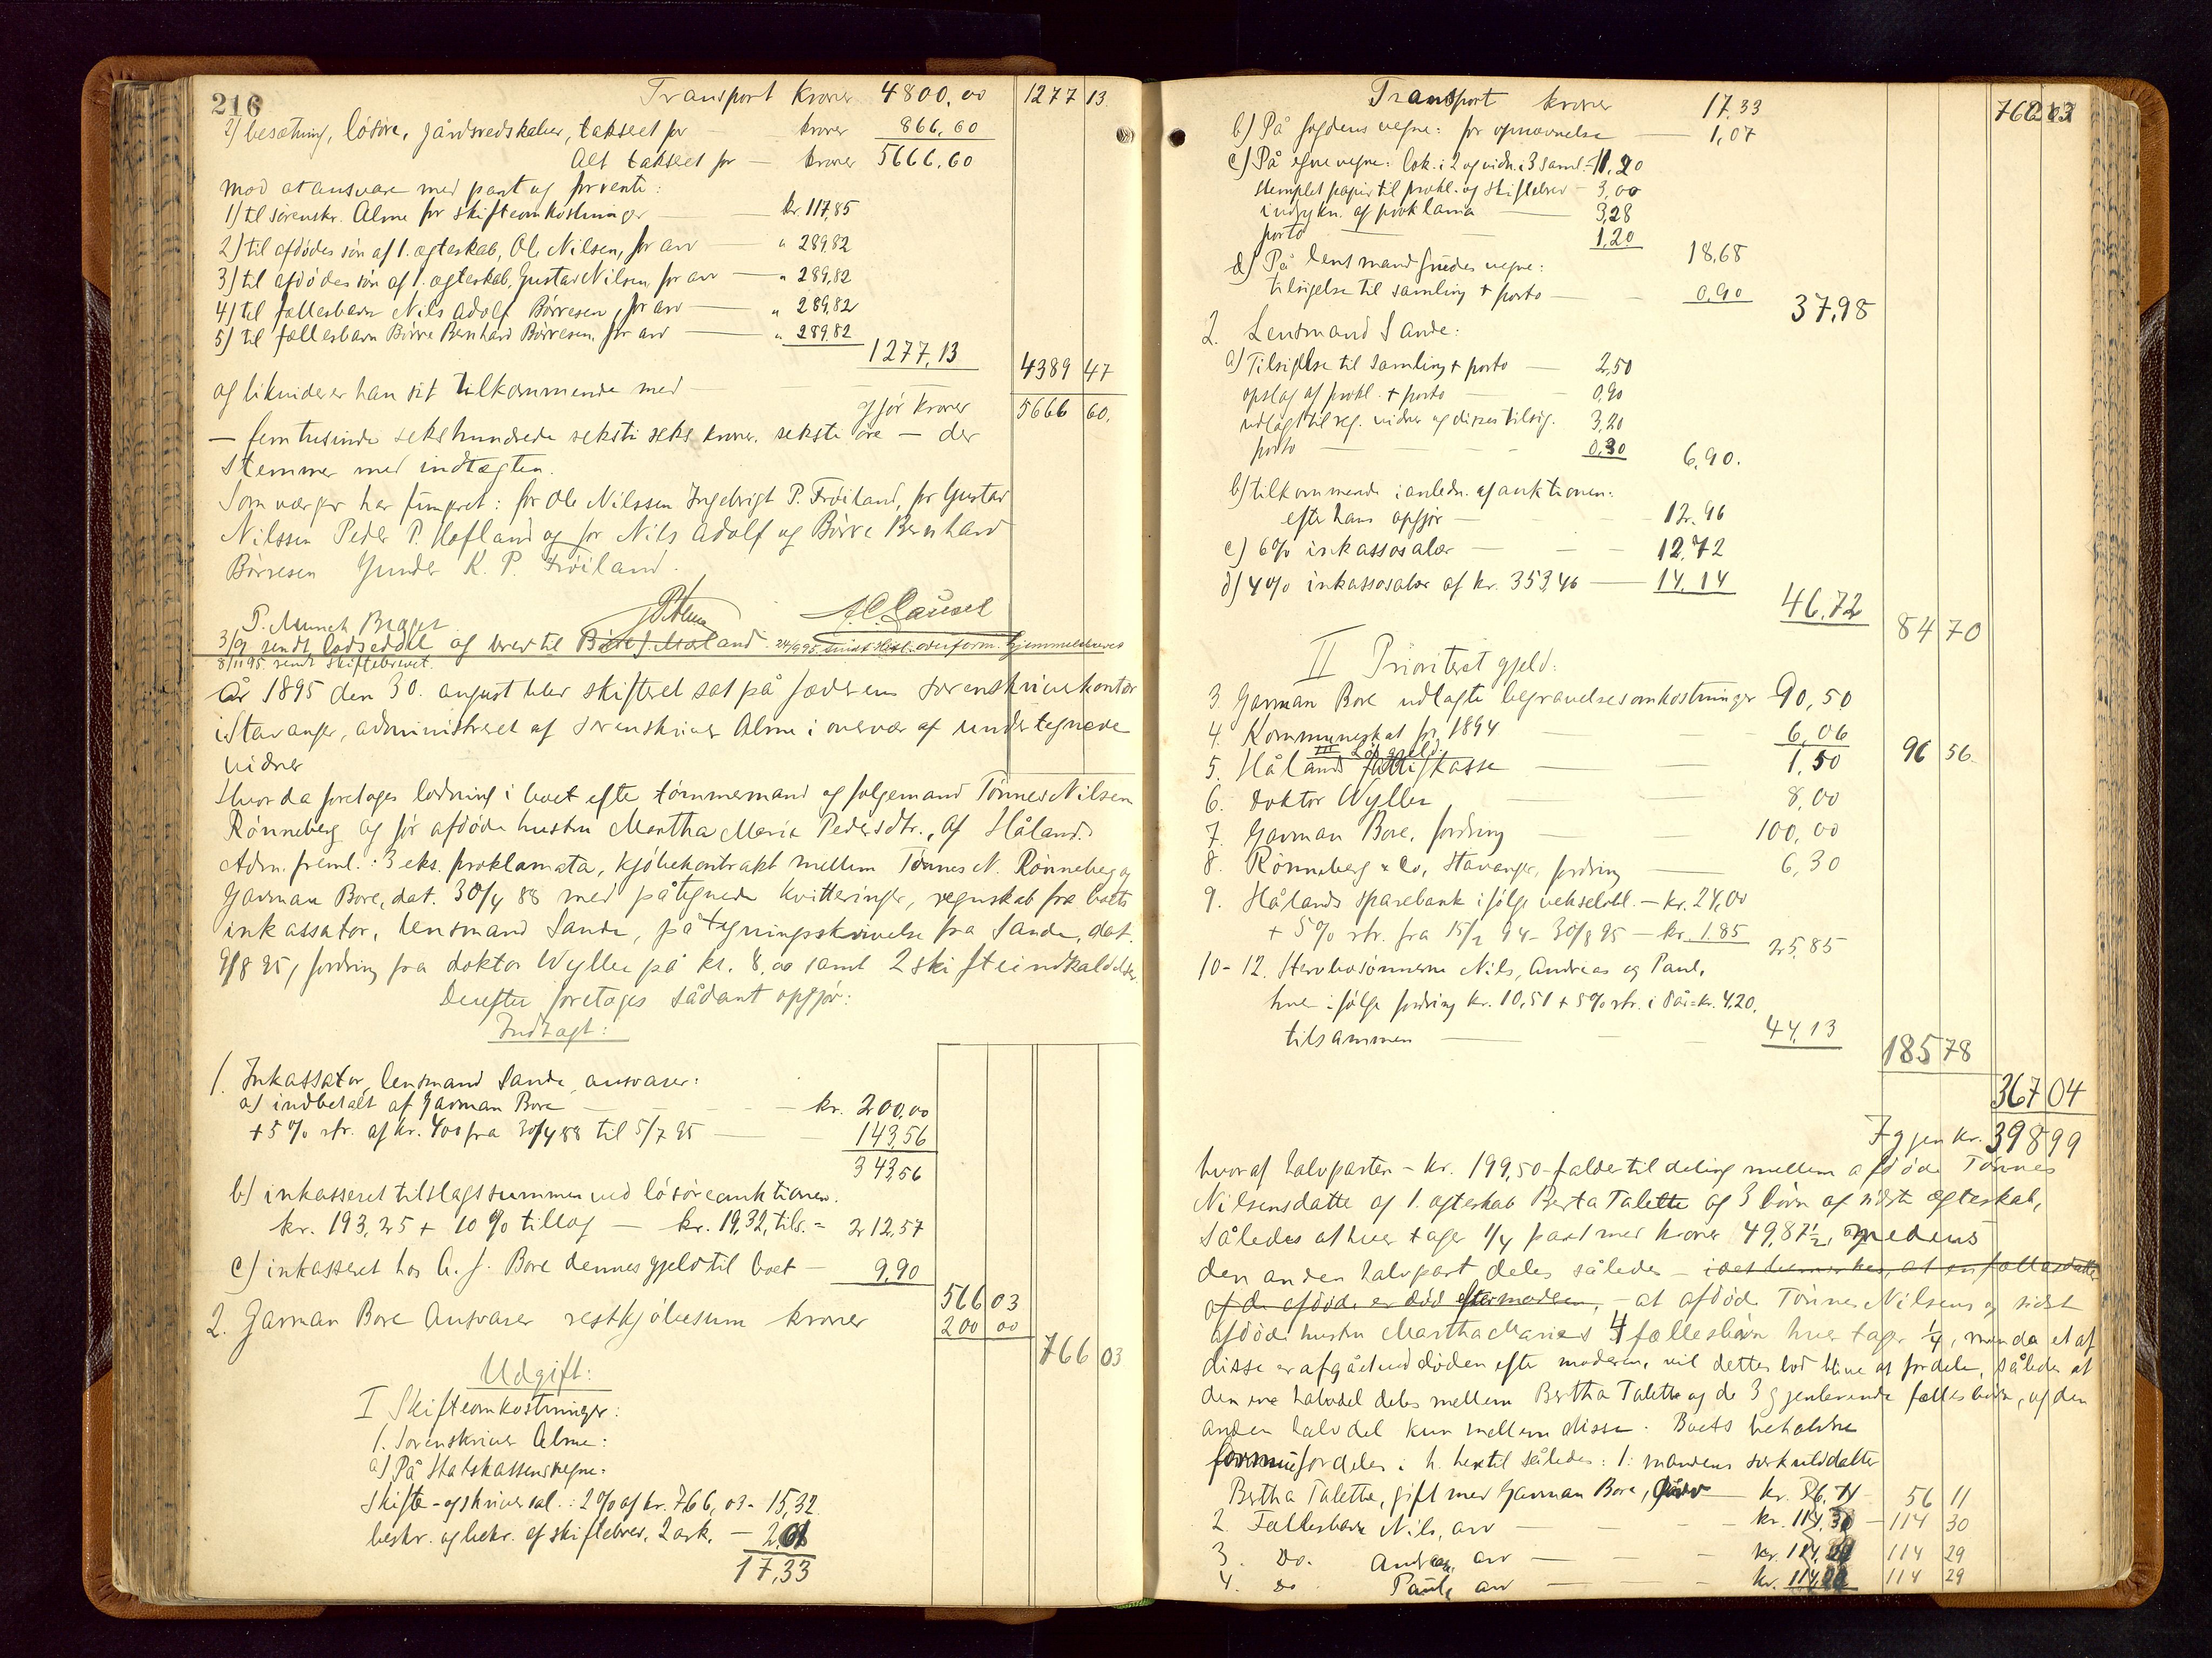 216
Transport kroner 4800,00 1277 13
2) besætning, lösöre, gårdsredskaber, taksert for — kroner 866,60
Alt taksert for — kroner 5666,60
mod at ansvare med pant og forrente:
1) til sorenskr. Alme for skifteomkostninger — kr. 117,85
2) til afdödes sön af 1. ægteskab, Ole Nilsen, for arv — " 289,82
3) til afdödes sön af 1. ægteskab, Gustav Nilsen, for arv — " 289,82
4) til fællesbarn Nils Adolf Börresen, for arv — " 289,82
5) til fællesbarn Börre Bernhard Börresen, for arv — " 289,82
1277,13
og likviderer han sit tilkommende med — 4389 47
gjör kroner 5666 60.
— fem tusinde sekshundrede seksti seks kroner, seksti öre — der
stemmer med indtægten.
Som værger har fungeret: for Ole Nilssen Ingebrigt P. Fröiland, for Gustav
Nilssen Peder P. Hofland og for Nils Adolf og Börre Bernhard
Börresen Gunder K. P. Fröiland.
P. Munch
3/9 sendt lodseddel og brev til
8/11 95 sendt skiftebrevet.
År 1895 den 30. august blev skifteret sat på Jæderens sorenskriverkontor
i Stavanger, administreret af sorenskriver Alme i overvær af undertegnede
vidner
Hvorda foretoges lodning i boet efter tömmermand og selgemand Tönnes Nilsen
Rönneberg og för afdöde hustru Martha Marie Pedersdtr., af Håland.
Adm. freml.: 3 eks. proklamata, kjöbekontrakt mellem Tönnes N. Rönneberg og
Garman Bore, dat. 30/4 88 med påtegnede kvitteringer, regnskab fra boets
inkassator, lensmand Sande, påtegningsskrivelse fra Sande, dat.
9/8 95, fordring fra doktor Wyller på kr. 8,00 samt 2 skifteindkaldelser.
Derefter foretoges sådant opgjör:
Indtægt:
1. Inkassator, lensmand Sande, ansvarer:
a) indbetalt af Garman Bore — kr. 200,00
+ 5% rtr. af kr. 400 fra 30/4 88 til 5/7 95 — 143,56
343,56
b) inkasseret tilslagssummen ved lösöreauktionen.
kr. 193,25 + 10% tillæg — kr. 19,32, tils. = 212,57
c) inkasseret hos G. J. Bore dennes gjeld til boet — 9,90
566 03
2. Garman Bore ansvarer restkjöbesum kroner 200 00
766 03
Udgift:
I Skifteomkostninger:
1. Sorenskriver Alme:
a) På Statskassens vegne:
Skifte- og skriversal.: 2% af kr. 766,03 - 15,32
beskr. og bekr. af skiftebrev, 2 ark, — 2,01
17,33
Transport kroner 17,33 766 03
b) På fogdens vegne: for opnævnelse — 1,07
c) På egne vegne: lok. i 2 og vidn. i 3 saml. = 11,20
stemplet papir til prokl. og skiftebrev — 3,00
indrykn. af proklama — 3,28
porto — 1,20
18,68
d) På lensmand vegne:
tilsigelse til samling + porto — 0,90
37,98
2. Lensmand Sande:
a) Tilsigelse til samling + porto — 2,50
opslag af prokl. + porto 0,90
udlagt til reg. vidner og disses tilsig. 3,20
porto — 0,30
6,90.
b) tilkommende i anledn. af auktionen:
efter hans opgjör — 12,96
c) 6% inkassosalær — 12,72
d) 4% inkassosalær af kr. 353,46 — 14,14
46,72
84 70
II Prioritert gjeld:
3. Garman Bore udlagte begravelsesomkostninger 90,50
4. Kommuneskat for 1894 6,06
96 56
III Lös gjeld
5. Hålands fattigkasse — 1,50
6. Doktor Wyller — 8,00
7. Garman Bore, fordring — 100,00
8. Rönneberg & Co, Stavanger, fordring — 6,30
9. Hålands sparebank ifölge vekselobl. — kr. 24,00
+ 5% rtr. fra 15/2 94 - 30/8 95 — kr. 1,85
25,85
10-12. Stervbosönnerne Nils, Andreas og Paul,
hver ifölge fordring kr. 10,51 + 5% rtr. i 8 år = kr. 4,20,
tilsammen — 44,13
185 78
367 04
Igjen kr. 398 99
hvoraf halvparten — kr. 199,50 — falder til deling mellem afdöde Tönnes
Nilsens datter af 1. ægteskab Berta Talette og 3 börn af sidste ægteskab,
således at hver tager 1/4 part med kroner 49,87½, medens
den anden halvpart deles således — idet bemerkes, at en fællesdatter
af de afdöde er död efter moderen, — at afdöde Tönnes Nilsens og sidst
afdöde hustru Martha Maries 4 fællesbörn hver tager 1/4, men da et af
disse er afgået ved döden efter moderen, vil dettes lod blive at fordele, således at
den ene halvdel deles mellem Bertha Talette og de 3 gjenlevende fællesbörn, og den
anden halvdel kun mellem disse. Boets beholdne
formue fordeles i h. hertil således: 1. mandens særkuldsdatter
Bertha Talette, gift med Garman Bore, arv — kr. 56,11 56 11
2. Fællesbarn Nils, arv — kr. 114,30 — 114 30
3. Do. Andreas, arv — kr. 114,29 114 29
4. Do Paul, arv — kr. 114,29 114 29